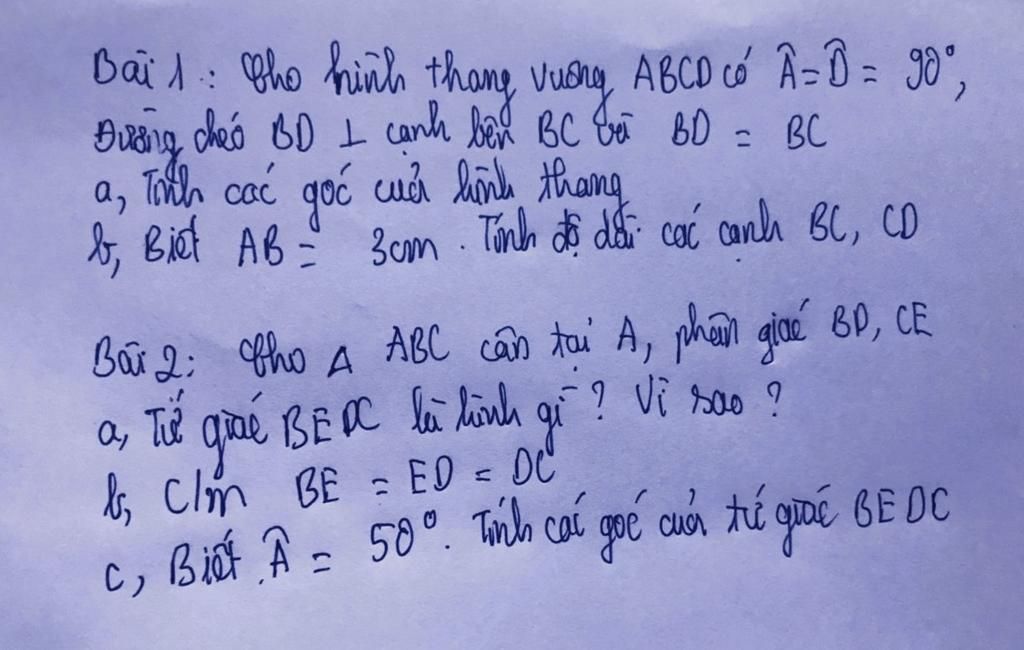 Bài 1 : Cho hình thang vuông ABCD có Â = D̂ = 90°,
Đường chéo BD ⊥ cạnh bên BC và BD = BC
a, Tính các góc của hình thang
b, Biết AB = 3cm . Tính độ dài các cạnh BC, CD
Bài 2: Cho Δ ABC cân tại A, phân giác BD, CE
a, Tứ giác BEDC là hình gì ? Vì sao ?
b, C/m BE = ED = DC
c, Biết Â = 50°. Tính các góc của tứ giác BEDC